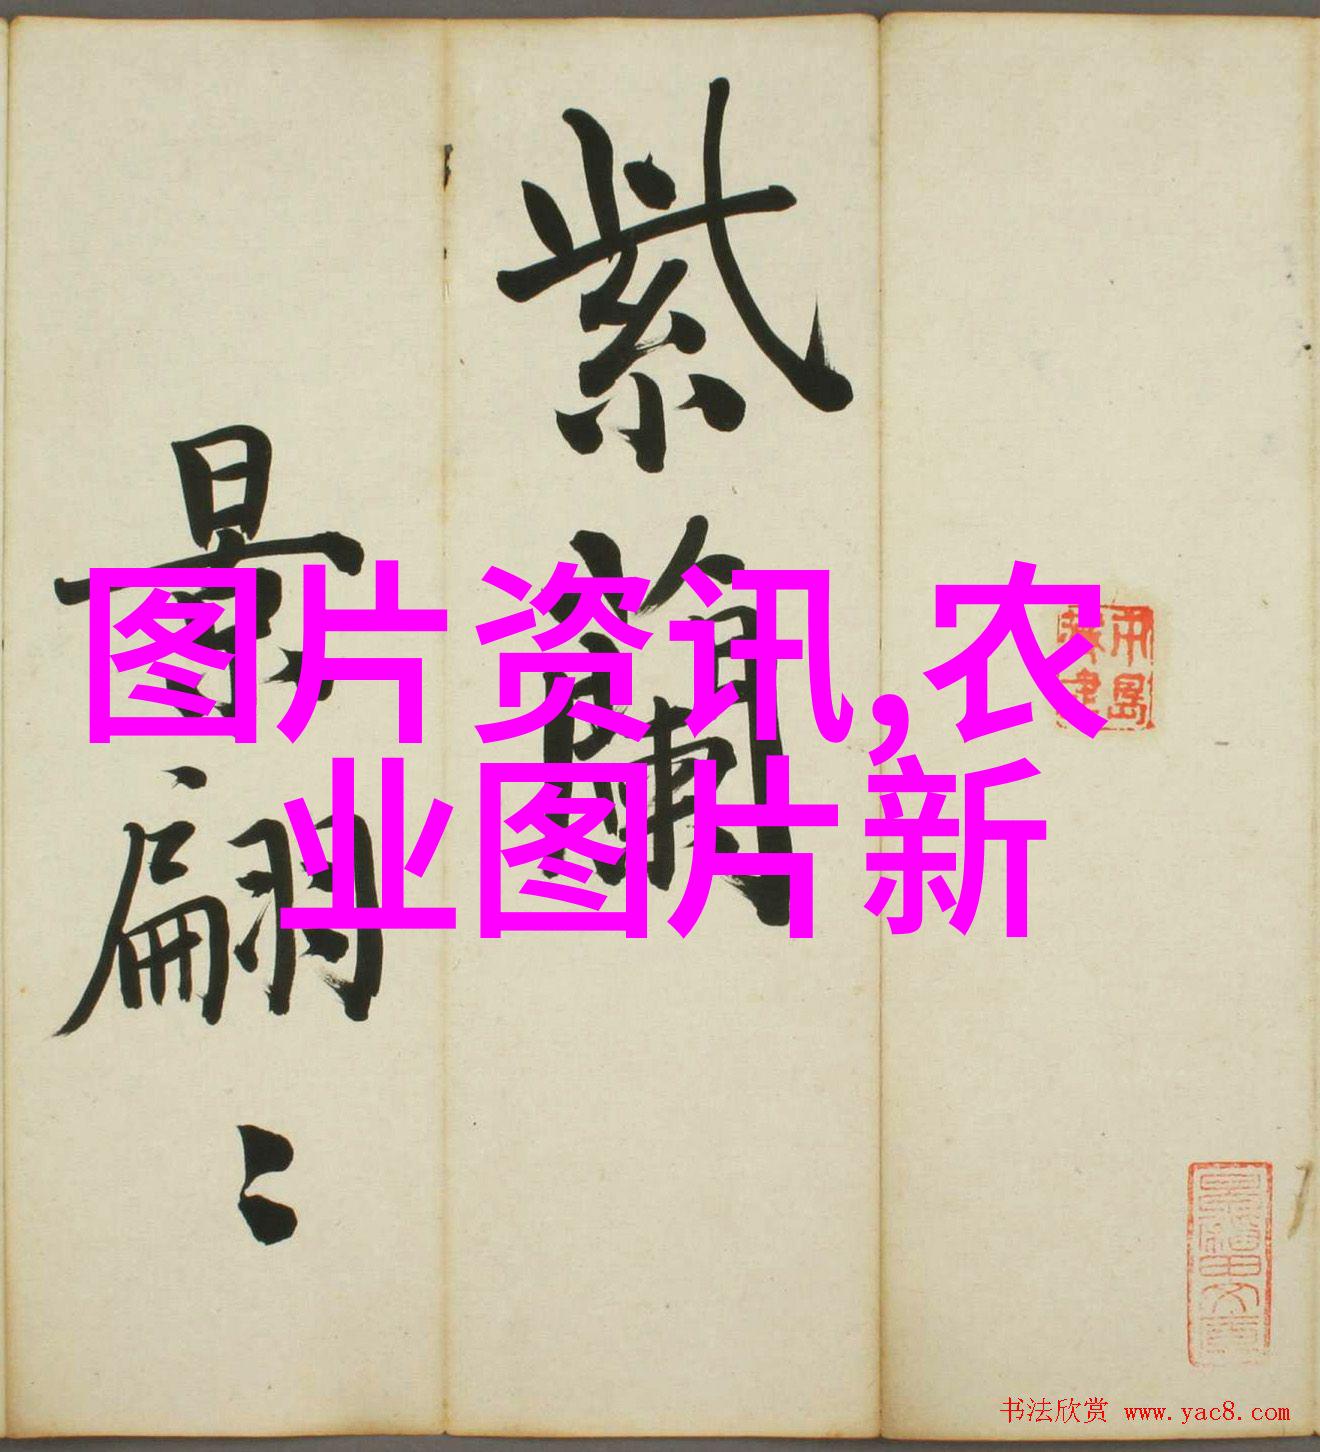 紫蘭
景翩〻
图片资讯,农
业图片新
书法欣赏 www.yac8.com